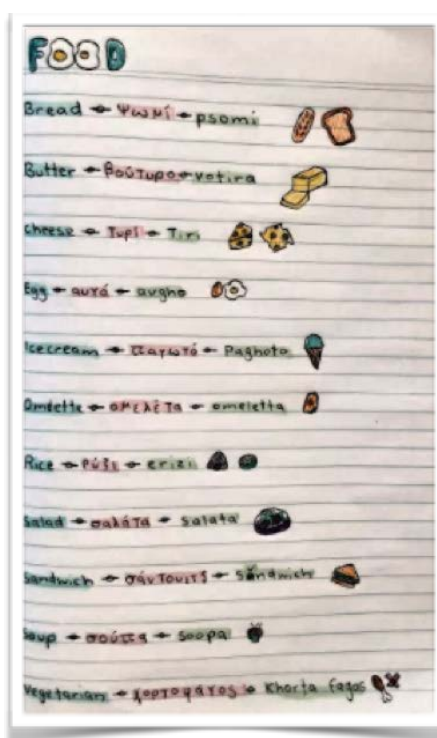 FOOD
Bread → ψωμί → psomi
Butter → βούτυρο → votira
cheese → τυρί → Tiri
Egg → αυγά → avgho
Icecream → παγωτό → Paghoto
Omelette → ομελέτα → omeletta
Rice → ρύζι → erizi
Salad → σαλάτα → Salata
Sandwich → σάντουιτς → Sandwich
Soup → σούπα → soopa
Vegetarian → χορτοφάγος → Khorta fagos